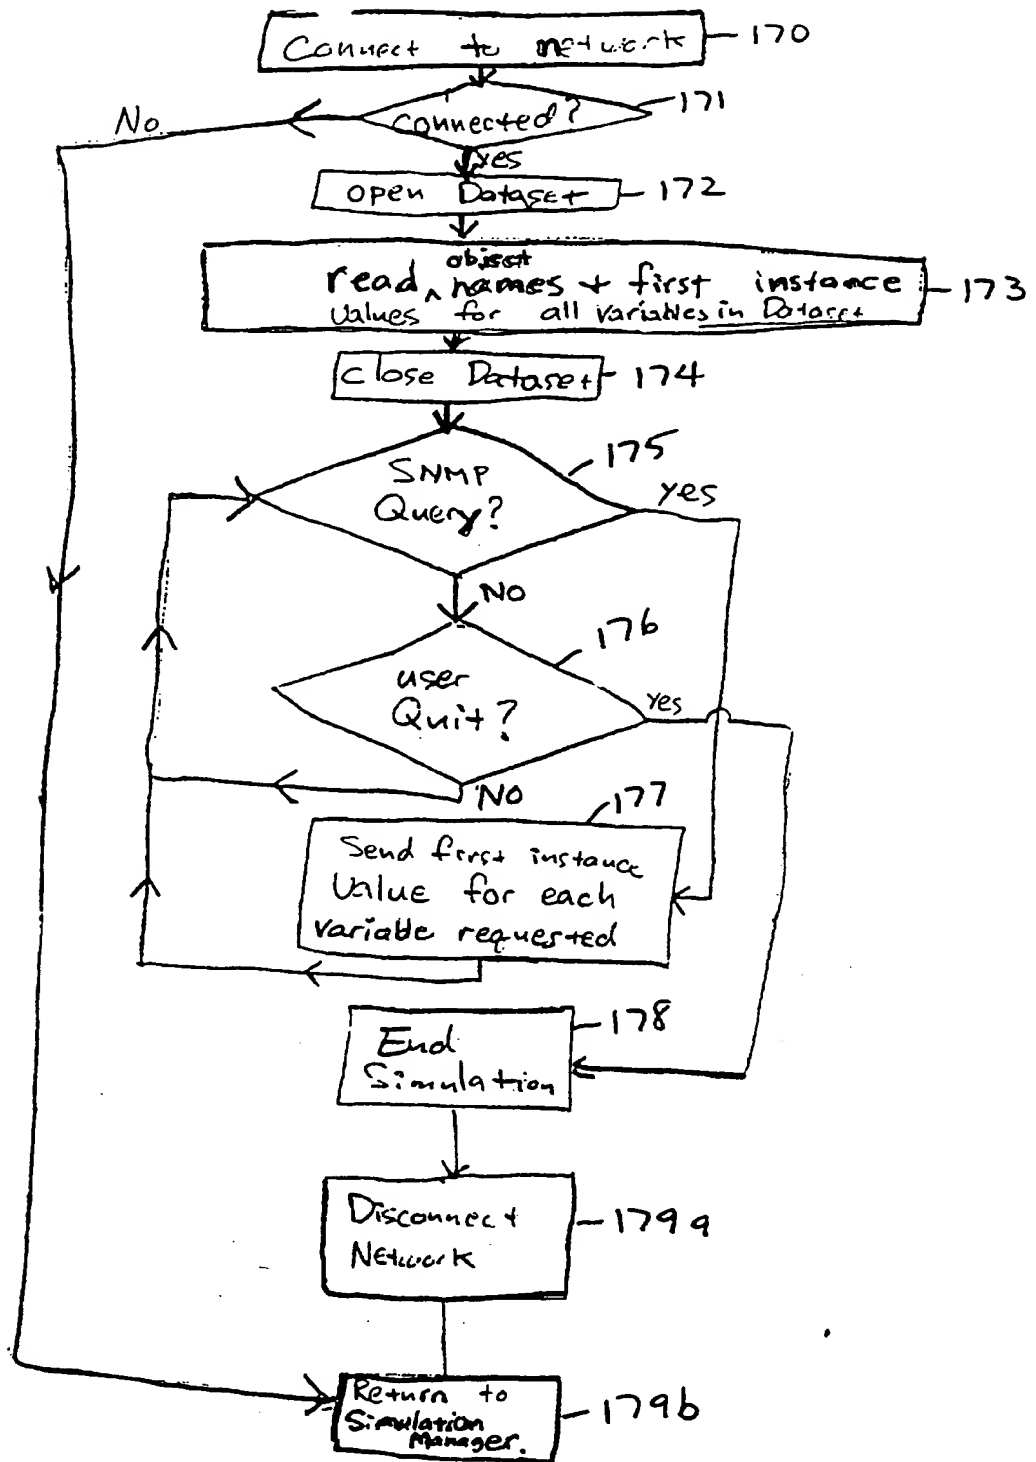 Connect to network
170
connected?
171
No
yes
open Dataset
172
object
read ^ names + first instance
values for all variables in Dataset
173
close Dataset
174
SNMP
Query?
175
yes
NO
user
Quit?
176
yes
NO
177
Send first instance
Value for each
variable requested
End
Simulation
178
Disconnect
Network
179a
Return to
Simulation
Manager.
179b